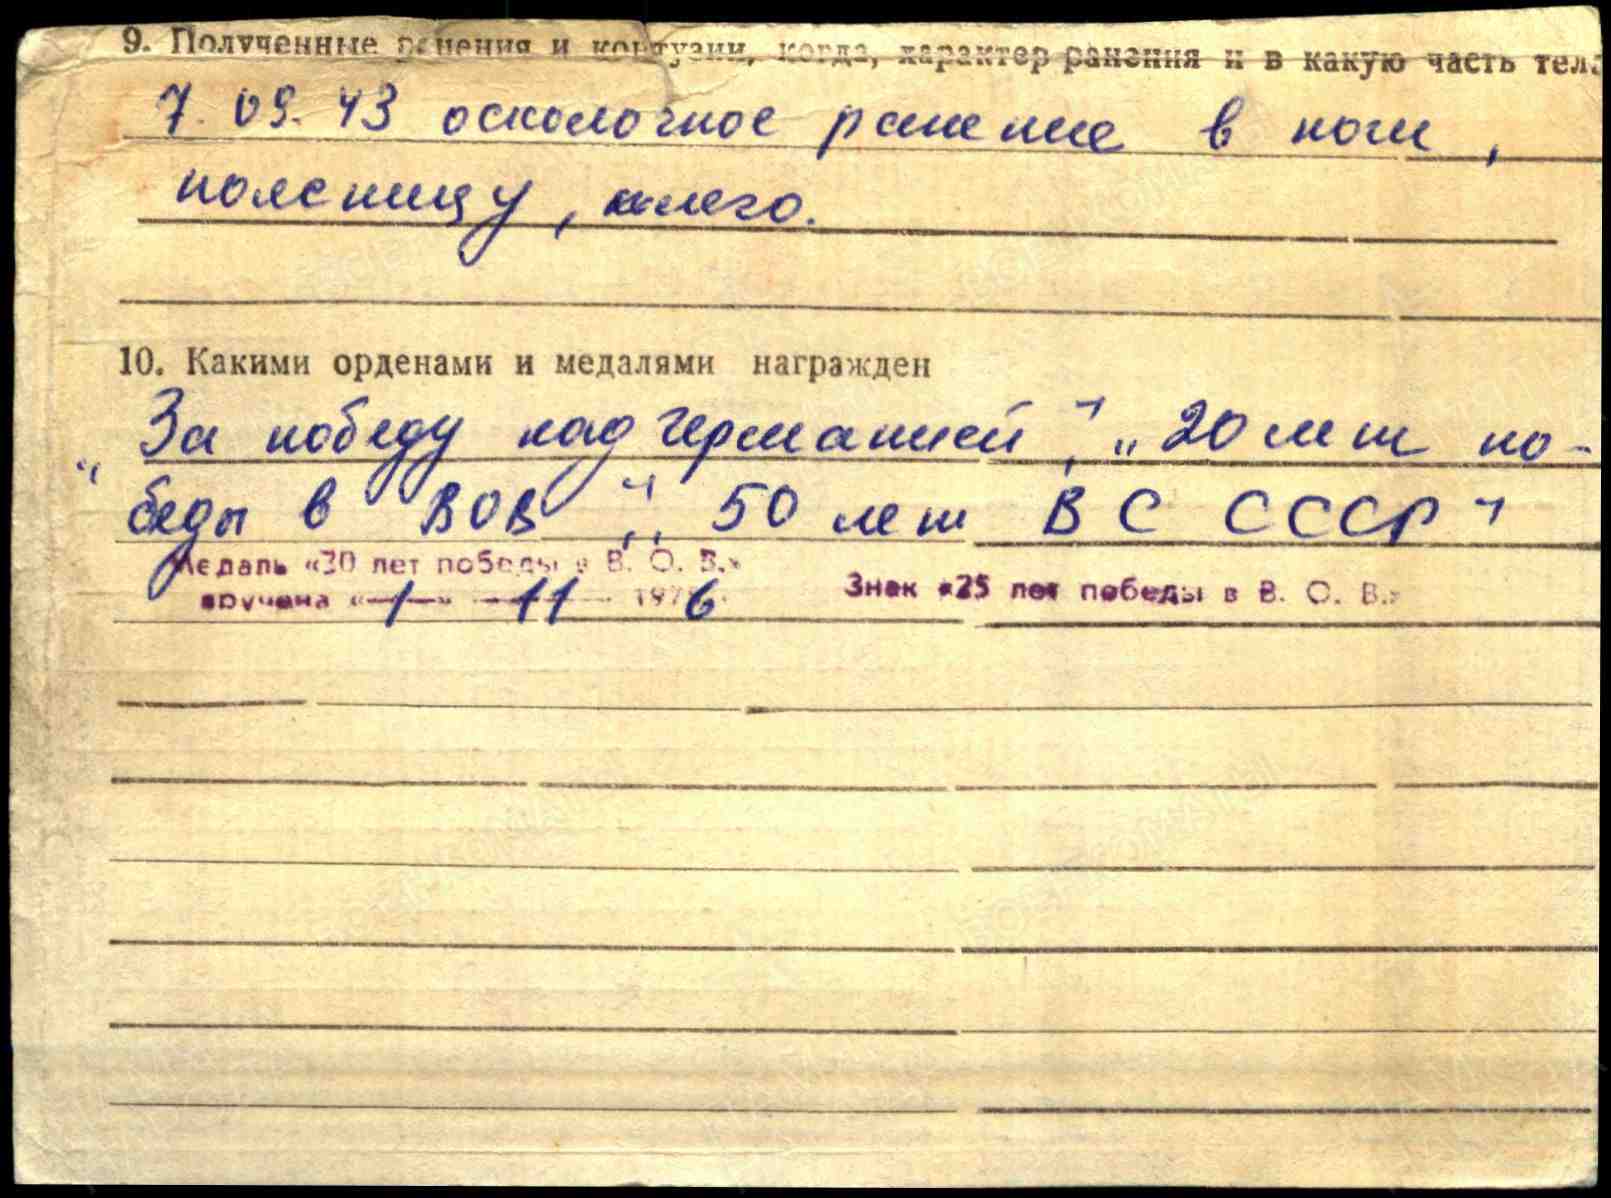 9. Полученные ранения и контузии, когда, характер ранения и в какую часть тела
7.09.43 осколочное ранение в ноги,
поясницу, плечо.
10. Какими орденами и медалями награжден
"За победу над Германией", "20 лет по-
беды в ВОВ", "50 лет ВС СССР"
Медаль «30 лет победы в В. О. В.»
вручена «1» 11 1976
Знак «25 лет победы в В. О. В.»